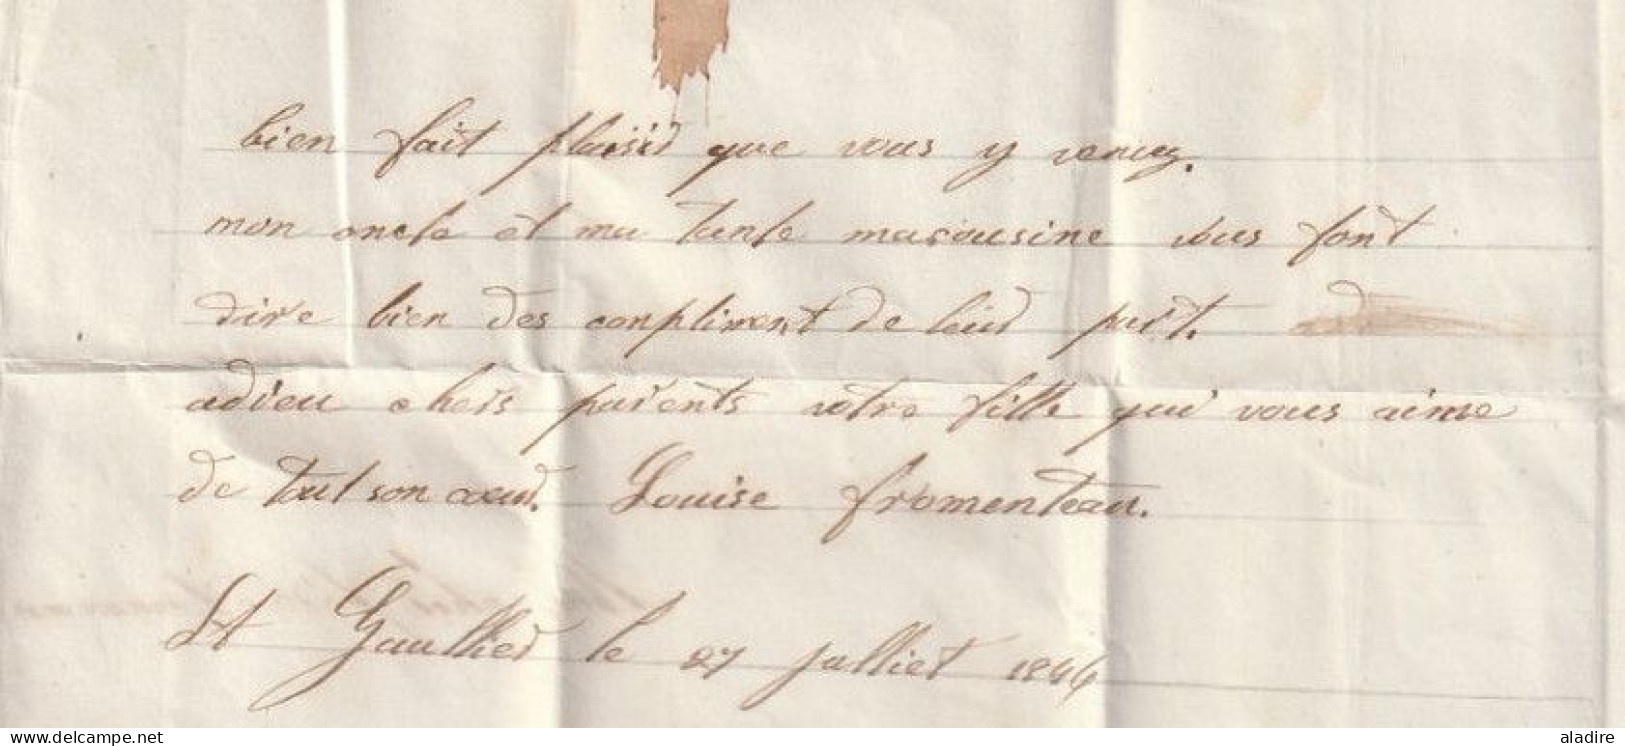 bien fait plaisir que vous y veniez.
mon oncle et ma tante marousine vous font
dire bien des conpliment de leur part.
adieu chers parents votre fille qui vous aime
de tout son cœur. Louise fromenteau.
St Gaultier le 27 julliet 1846
www.delcampe.net
aladire